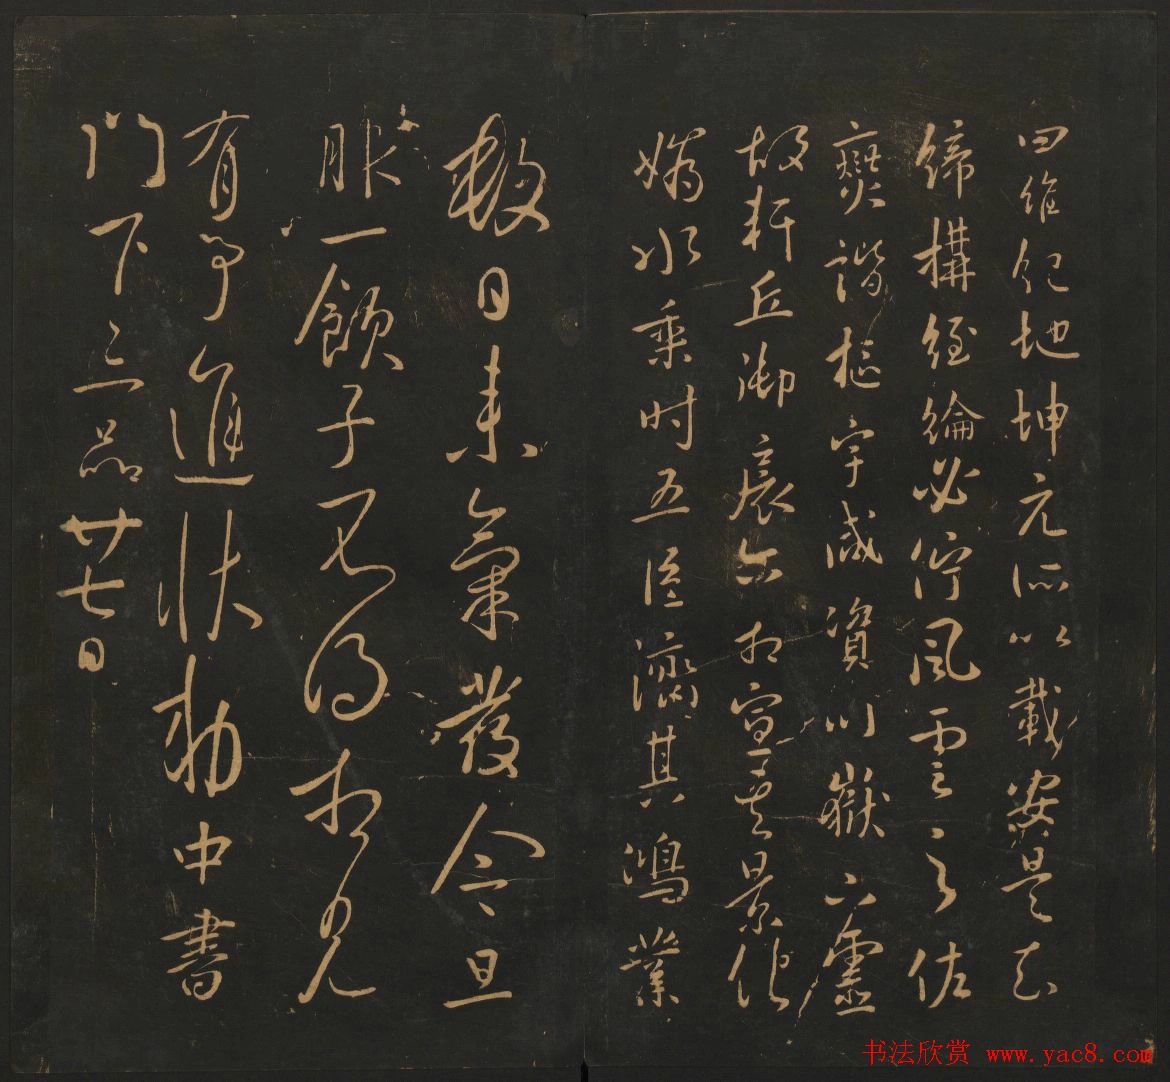 四維紀地坤元所以載安是知
締構經綸必佇風雲之佐
燮諧樞宇咸資川嶽之靈
故軒丘御扆六相宣其景化
媯水乘时五臣濟其鴻業
數日来氣發今旦
服一飲子不得相見
有事進狀勅中書
門下三品廿七日
书法欣赏 www.yac8.com